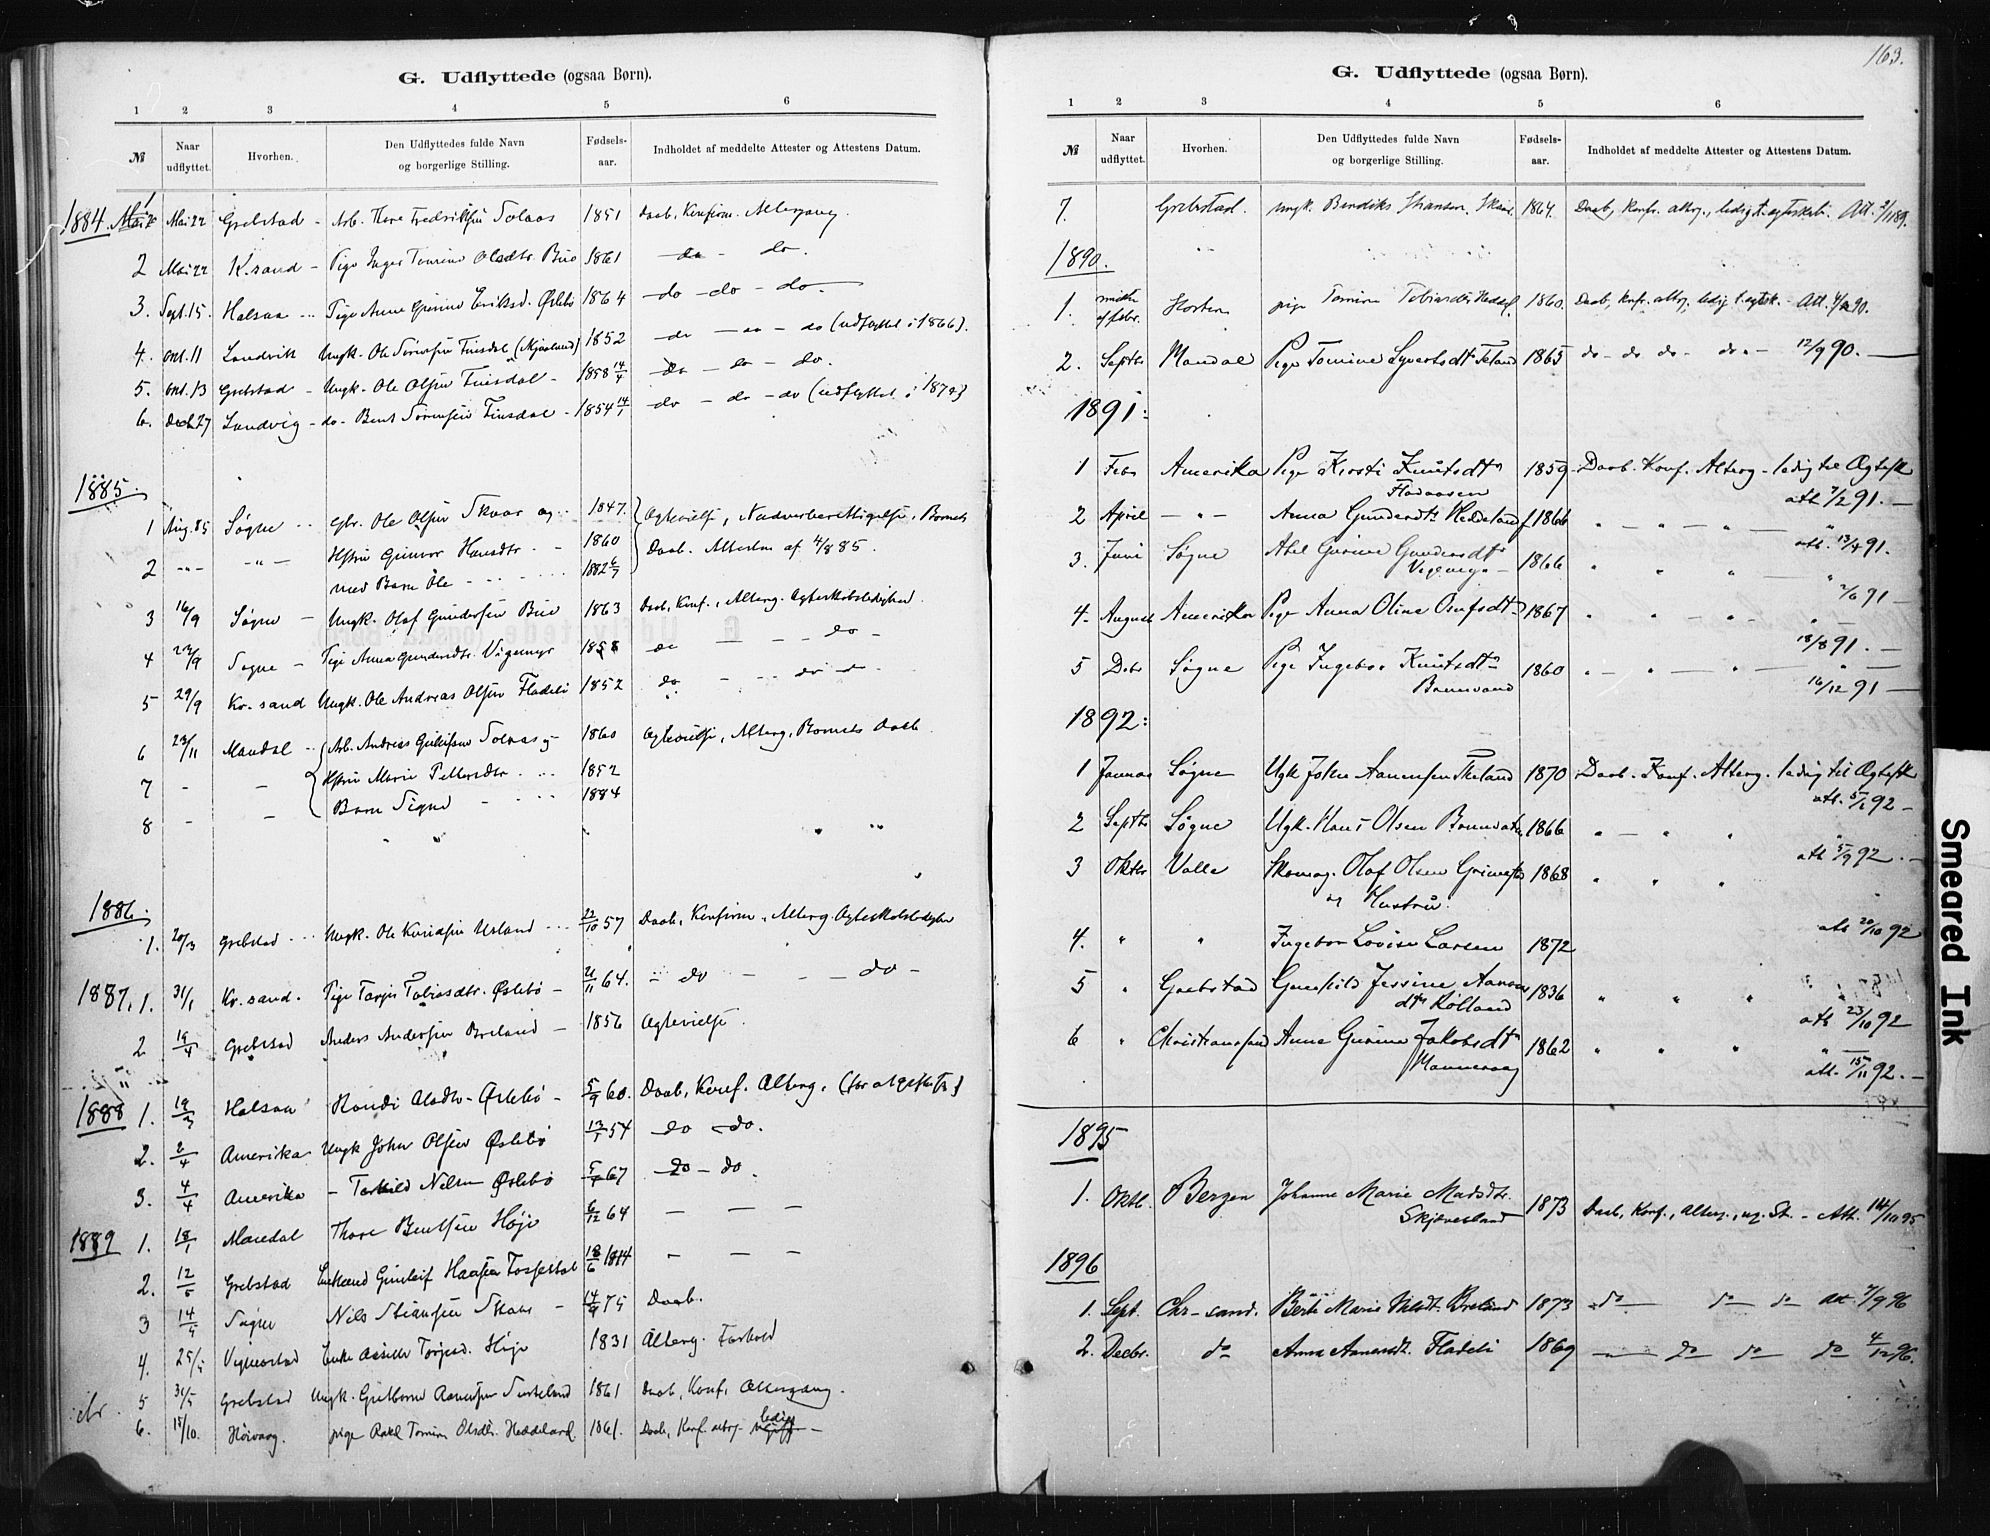 G. Udflyttede (ogsaa Børn).
1 2 3 4 5 6
№ Naar udflyttet. Hvorhen. Den Udflyttedes fulde Navn og borgerlige Stilling. Fødsels-aar. Indholdet af meddelte Attester og Attestens Datum.
1884. 1 Mai 22 Grebstad - Arb. Fredriksen Solaas 1851 Daab, Konfirm. Altergang.
2 Mai 22 K.sand - Pige Inger Tomine Olsdtr. Bue 1861 do - do.
3. Sept. 15. Halsaa - Pige Anne Gurine Eriksd. Øslebø 1864 do - do - do.
4. Okt. 11 Landvik Ungk. Ole Sørensen Finsdal (Mjaaland) 1852 do - do - do (udflyttet i 1866).
5. Okt. 13 Grebstad - Ungk. Ole Olsen Finsdal - 1858 14/4 do - do - do.
6. Decb 27 Landvig - do - Bent Sørensen Finsdal - 1854 14/1 do - do - do (udflyttet i 187
1885.
1 Aug. 85 Søgne - gbr. Ole Olsen Skaar og 1847. Ægtevielse, Nadverberettigelse, Barnets
2 - " - - " - Hstru Gunvor Hansdtr. - 1860 Daab. Attester af 4/8 85.
med Barn Ole - 1882 6/7
3 16/9 Søgne - Ungk. Olaf Gundersen Bue 1863 Daab, Konf., Alterg. Ægteskabsledighed.
4 23/9 Søgne - Pige Anna Gundersdtr. Vigemyr 1858 do - - - do -
5 29/9 Kr. sand Ungk. Ole Andreas Olsen Fladebø 1852 do - - do do -
6 23/11 Mandal Arb. Andreas Solaas og 1860 Ægtevielse, Alterg., Barnets Daab
7 - - Hstru Marie Pettersdtr. 1852
8 - - Barn Signe 1884
1886.
1. 20/3 Grebstad Ungk. Ole Knudsen Usland 22/10 57 Daab, Konfirm., Alterg. Ægteskabsledighed
1887. 1. 31/1 Kr. sand. Pige Tobiasdtr. Øslebø - 21/11 64. - do - - do -
2 19/4 Grebstad Anders Andersen Breland - 1856 Ægtevielse.
1888 1. 19/3 Halsaa Olsdtr. Øslebø - 5/9 60. Daab, Konf. Alterg.
2. 2/4 Amerika Ungk John Olsen Øslebø 13/1 54 do do.
3. 4/4 Amerika - Torkild Nilsen Øslebø 5/7 67 do - do.
1889 1. 18/1 Mandal Thore Bentsen Høje 6/12 64 - - -
2. 12/5 Grebstad Enkemand Gunleif Hansen 18/6 1814 - - -
3 14/5 Søgne Nils Stiansen Skaar - 14/9 75 Daab.
4. 25/5 Vigmostad Enke Torjesd. Høje 1831 Alterg. Forhold
5 31/5 Grebstad Ungk. Aanensen 1861 Daab, Konf. Altergang.
6. 15/10. Høivaag. pige Rakel Tomine Olsdtr. Heddeland. 1861. Daab, Konf. alterg. ledig

163.
G. Udflyttede (ogsaa Børn).
1 2 3 4 5 6
№ Naar udflyttet. Hvorhen. Den Udflyttedes fulde Navn og borgerlige Stilling. Fødsels-aar. Indholdet af meddelte Attester og Attestens Datum.
7. Grebstad. ungk. Bendiks Hansen 1864. Daab, konf. alterg., ledig t. ægteskab. Att. 2/11 89.
1890.
1. midte af febr. Horten pige Tomine Tobiasdtr Heddel. 1860. Daab, konf. alterg., ledig t. ægtsk. Att. 90.
2. Septbr Mandal Pige Tomine Syvertsdtr 1865 do - do do - do - 12/9 90.
1891:
1 Febr Amerika Pige Kirsti Knutsdtr 1859 Daab. Konf. Alterg. - ledig til Ægtesk
Fladaasen att 7/2 91. -
2 April - " - Anna Gundersdtr Heddeland 1866 " - " - " - "
att. 13/4 91.
3. Juni Søgne Abel Gurine Gundersdtr 1866 " " " - "
Vigemyr - 2/6 91 -
4. August Amerika Pige Anna Oline Omfsdtr 1867 " " - " - "
18/8 91. -
5 Debr Søgne Pige Ingebor Knutsdtr 1860 " - " - " - "
Brunvand 16/12 91 -
1892:
1 Januar Søgne Ugk John Aanensen 1870 Daab. Konf. Alterg. ledig til Ægtesk
att. 5/1 92 -
2 Septbr Søgne Ugk. Hans Olsen Brunvatn 1866 " - " "
att 5/9 92. -
3 Oktbr Valle Skomag. Olaf Olsen 1868 " " "
og Hustru.
att 20/10 92
4. " " Ingebor Lovise Larsen 1872
5 " Grebstad Gunhild Jessine Aanons 1836 " " " "
dtr Kølland att 23/10 92
6 " Christianssand Anne Gurine Jakobsdtr 1862 " " " "
Mannevaag att. 15/11 92. -
1895
1. Oktb. Bergen Johanne Marie Madsdtr. 1873 Daab, Konf., Alterg., ug. St. - Att. 14/10 95
Skjævesland
1896
1. Sept. Chr-sand. Berte Marie Breland 1873 do do do Att. 7/9 96
2. Decbr. do Anna Aanensdt. Fladebø 1869 - do do do 4/12 96.
Smeared Ink